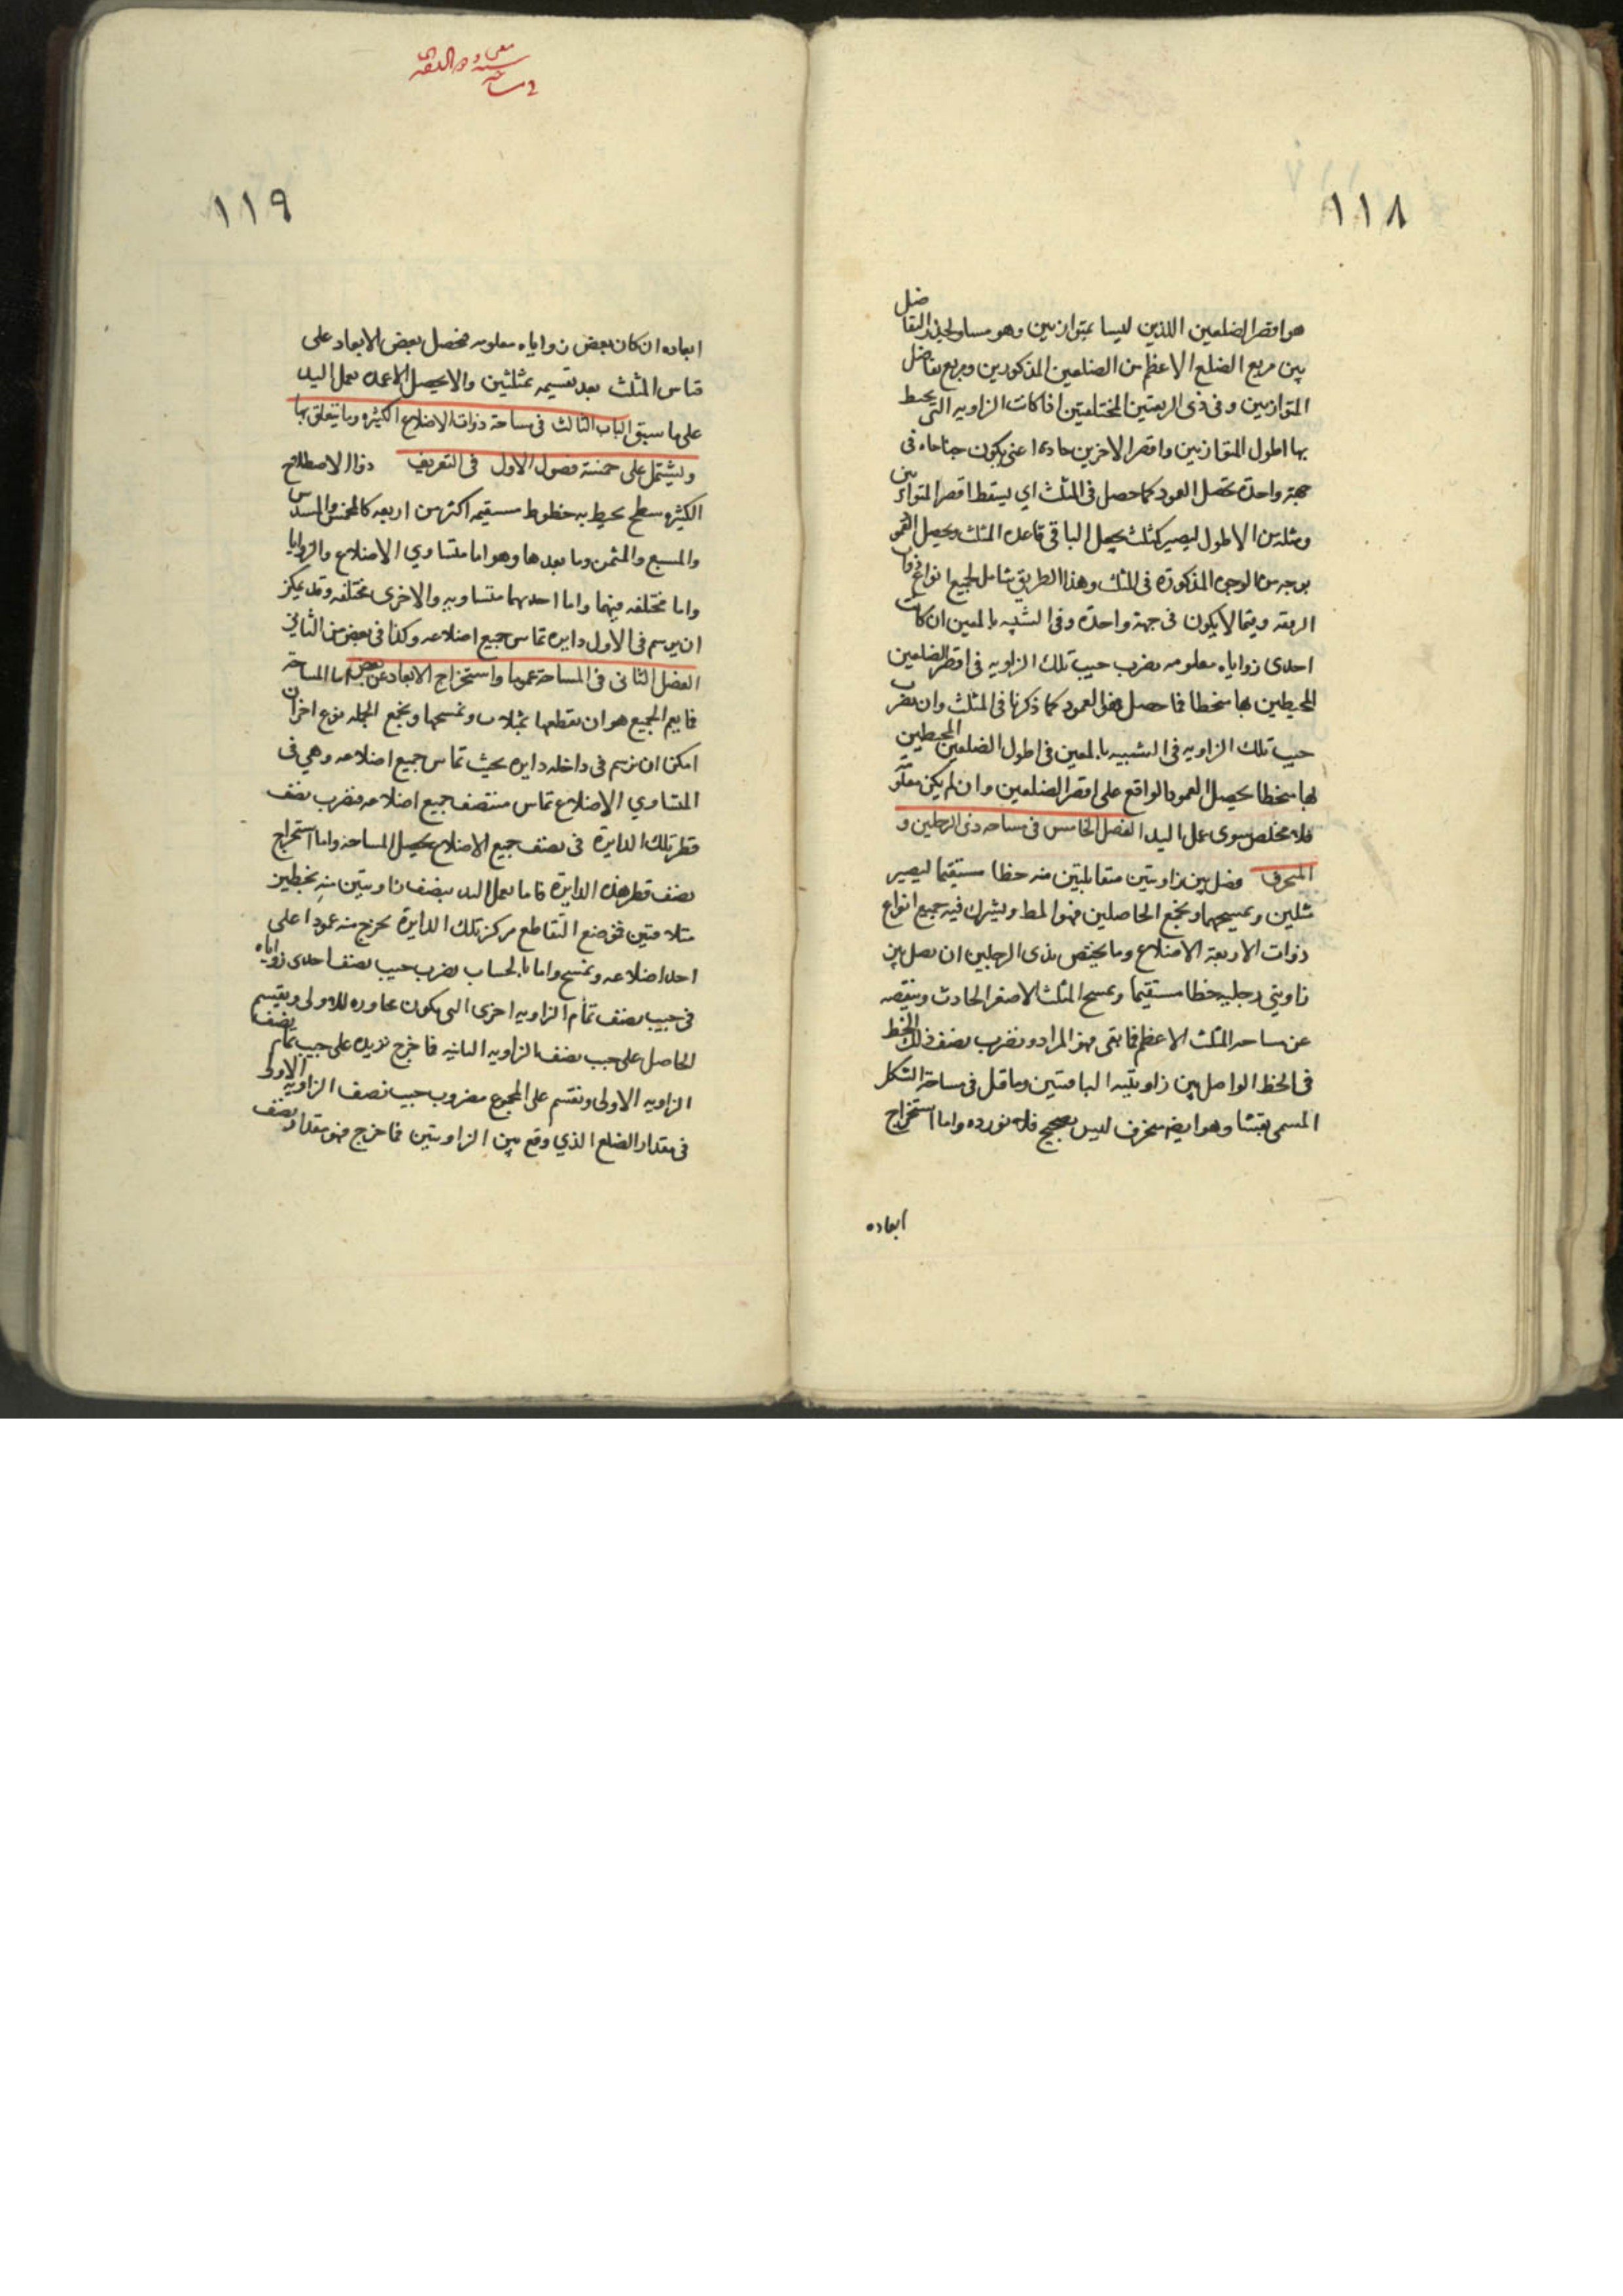 ١١٨
هو اقصر الضلعين اللذين ليسا بمتوازيين وهو مساو لجذر التفاضل
بين مربع الضلع الاعظم من الضلعين المذكورين ومربع تفاضل
المتوازيين وفى ذى الزنقتين المختلفتين اذا كانت الزاويه التى يحيط
بها اطول المتوازيين واقصر الاخرين حادة اعنى يكون جناحاه فى
جهة واحدة نحصل العمود كما حصل فى المثلث اي يسقط اقصر المتوازيين
ومثله من الاطول ليصير كمثلث يجعل الباقى قاعدة المثلث ويحصل العمود
بوجه من الوجوه المذكورة فى المثلث وهذا الطريق شامل لجميع انواع ذوات
الزنقة وفيما لا يكون فى جهة واحدة وفى الشبيه بالمعين ان كانت
احدى زواياه معلومه نضرب جيب تلك الزاويه فى اقصر الضلعين
المحيطين بها منحطا فما حصل فهو العمود كما ذكرنا فى المثلث وان نضرب
جيب تلك الزاويه فى الشبيه بالمعين فى اطول الضلعين المحيطين
بها منحطا يحصل العمود الواقع على اقصر الضلعين وان لم يكن معلومة
فلا مخلص سوى عمل اليد الفصل الخامس فى مساحه ذى الرجلين و
المنحرف فصل بين زاويتين متقابلتين منه خطا مستقيما ليصير
مثلثين ونمسحهما ونجمع الحاصلين فهو المط ويشرك فيه جميع انواع
ذوات الاربعة الاضلاع وما يختص بذى الرجلين ان نصل بين
زاويتي رجليه خطا مستقيما ونمسح المثلث الاصغر الحادث وننقصه
عن مساحه المثلث الاعظم فما بقى فهو المراد ونضرب نصف ذلك الخط
فى الخط الواصل بين زاويتيه الباقيتين وما قيل فى مساحة الشكل
المسمى بقثا وهو ايضه منحرف ليس بصحيح فلا نورده واما استخراج
ابعاده
١١٩
ابعاده ان كان بعض زواياه معلومه فحصل بعض الابعاد على
قياس المثلث بعد تقسيمه بمثلثين والا يحصل الاعمدة بعمل اليد
على ما سبق الباب الثالث فى مساحة ذوات الاضلاع الكثيره وما يتعلق بها
ويشتمل على خمسة فصول الاول فى التعريف ذوا الاضلاع
الكثيره سطح يحيط به خطوط مستقيمه اكثر من اربعه كالمخمس والمسدس
والمسبع والمثمن وما بعدها وهو اما متساوي الاضلاع والزوايا
واما مختلفه فيهما واما احديهما متساويه والاخرى مختلفه وقد يمكن
ان يرسم فى الاول دايره تماس جميع اضلاعه وكذا فى بعض من الثانى
الفصل الثانى فى المساحة عموما واستخراج الابعاد عن بعض اما المساحة
فما يعم الجميع هو ان نقطعها بمثلثات ونمسحها ونجمع الجمله نوع اخر ان
امكن ان نرسم فى داخله دايره بحيث تماس جميع اضلاعه وهي فى
المتساوي الاضلاع تماس منتصف جميع اضلاعه فنضرب نصف
قطر تلك الدايرة فى نصف جميع الاضلاع يحصل المساحة واما استخراج
نصف قطر هذه الدايرة فاما بعمل اليد ينصف زاويتين منه بخطين
متلاقيين فموضع التقاطع مركز تلك الدايرة نخرج منه عمودا على
احد اضلاعه ونمسح واما بالحساب نضرب جيب نصف احدى زواياه
فى جيب نصف تمام الزاويه اخرى التى يكون مجاوره للاولى ونقسم
الحاصل على جيب نصف الزاويه الثانيه فما خرج نزيده على جيب تمام نصف
الزاويه الاولى ونقسم على المجموع مضروب جيب نصف الزاويه الاولى
فى مقدار الضلع الذي وقع بين الزاويتين فما خرج فهو مقدار نصف